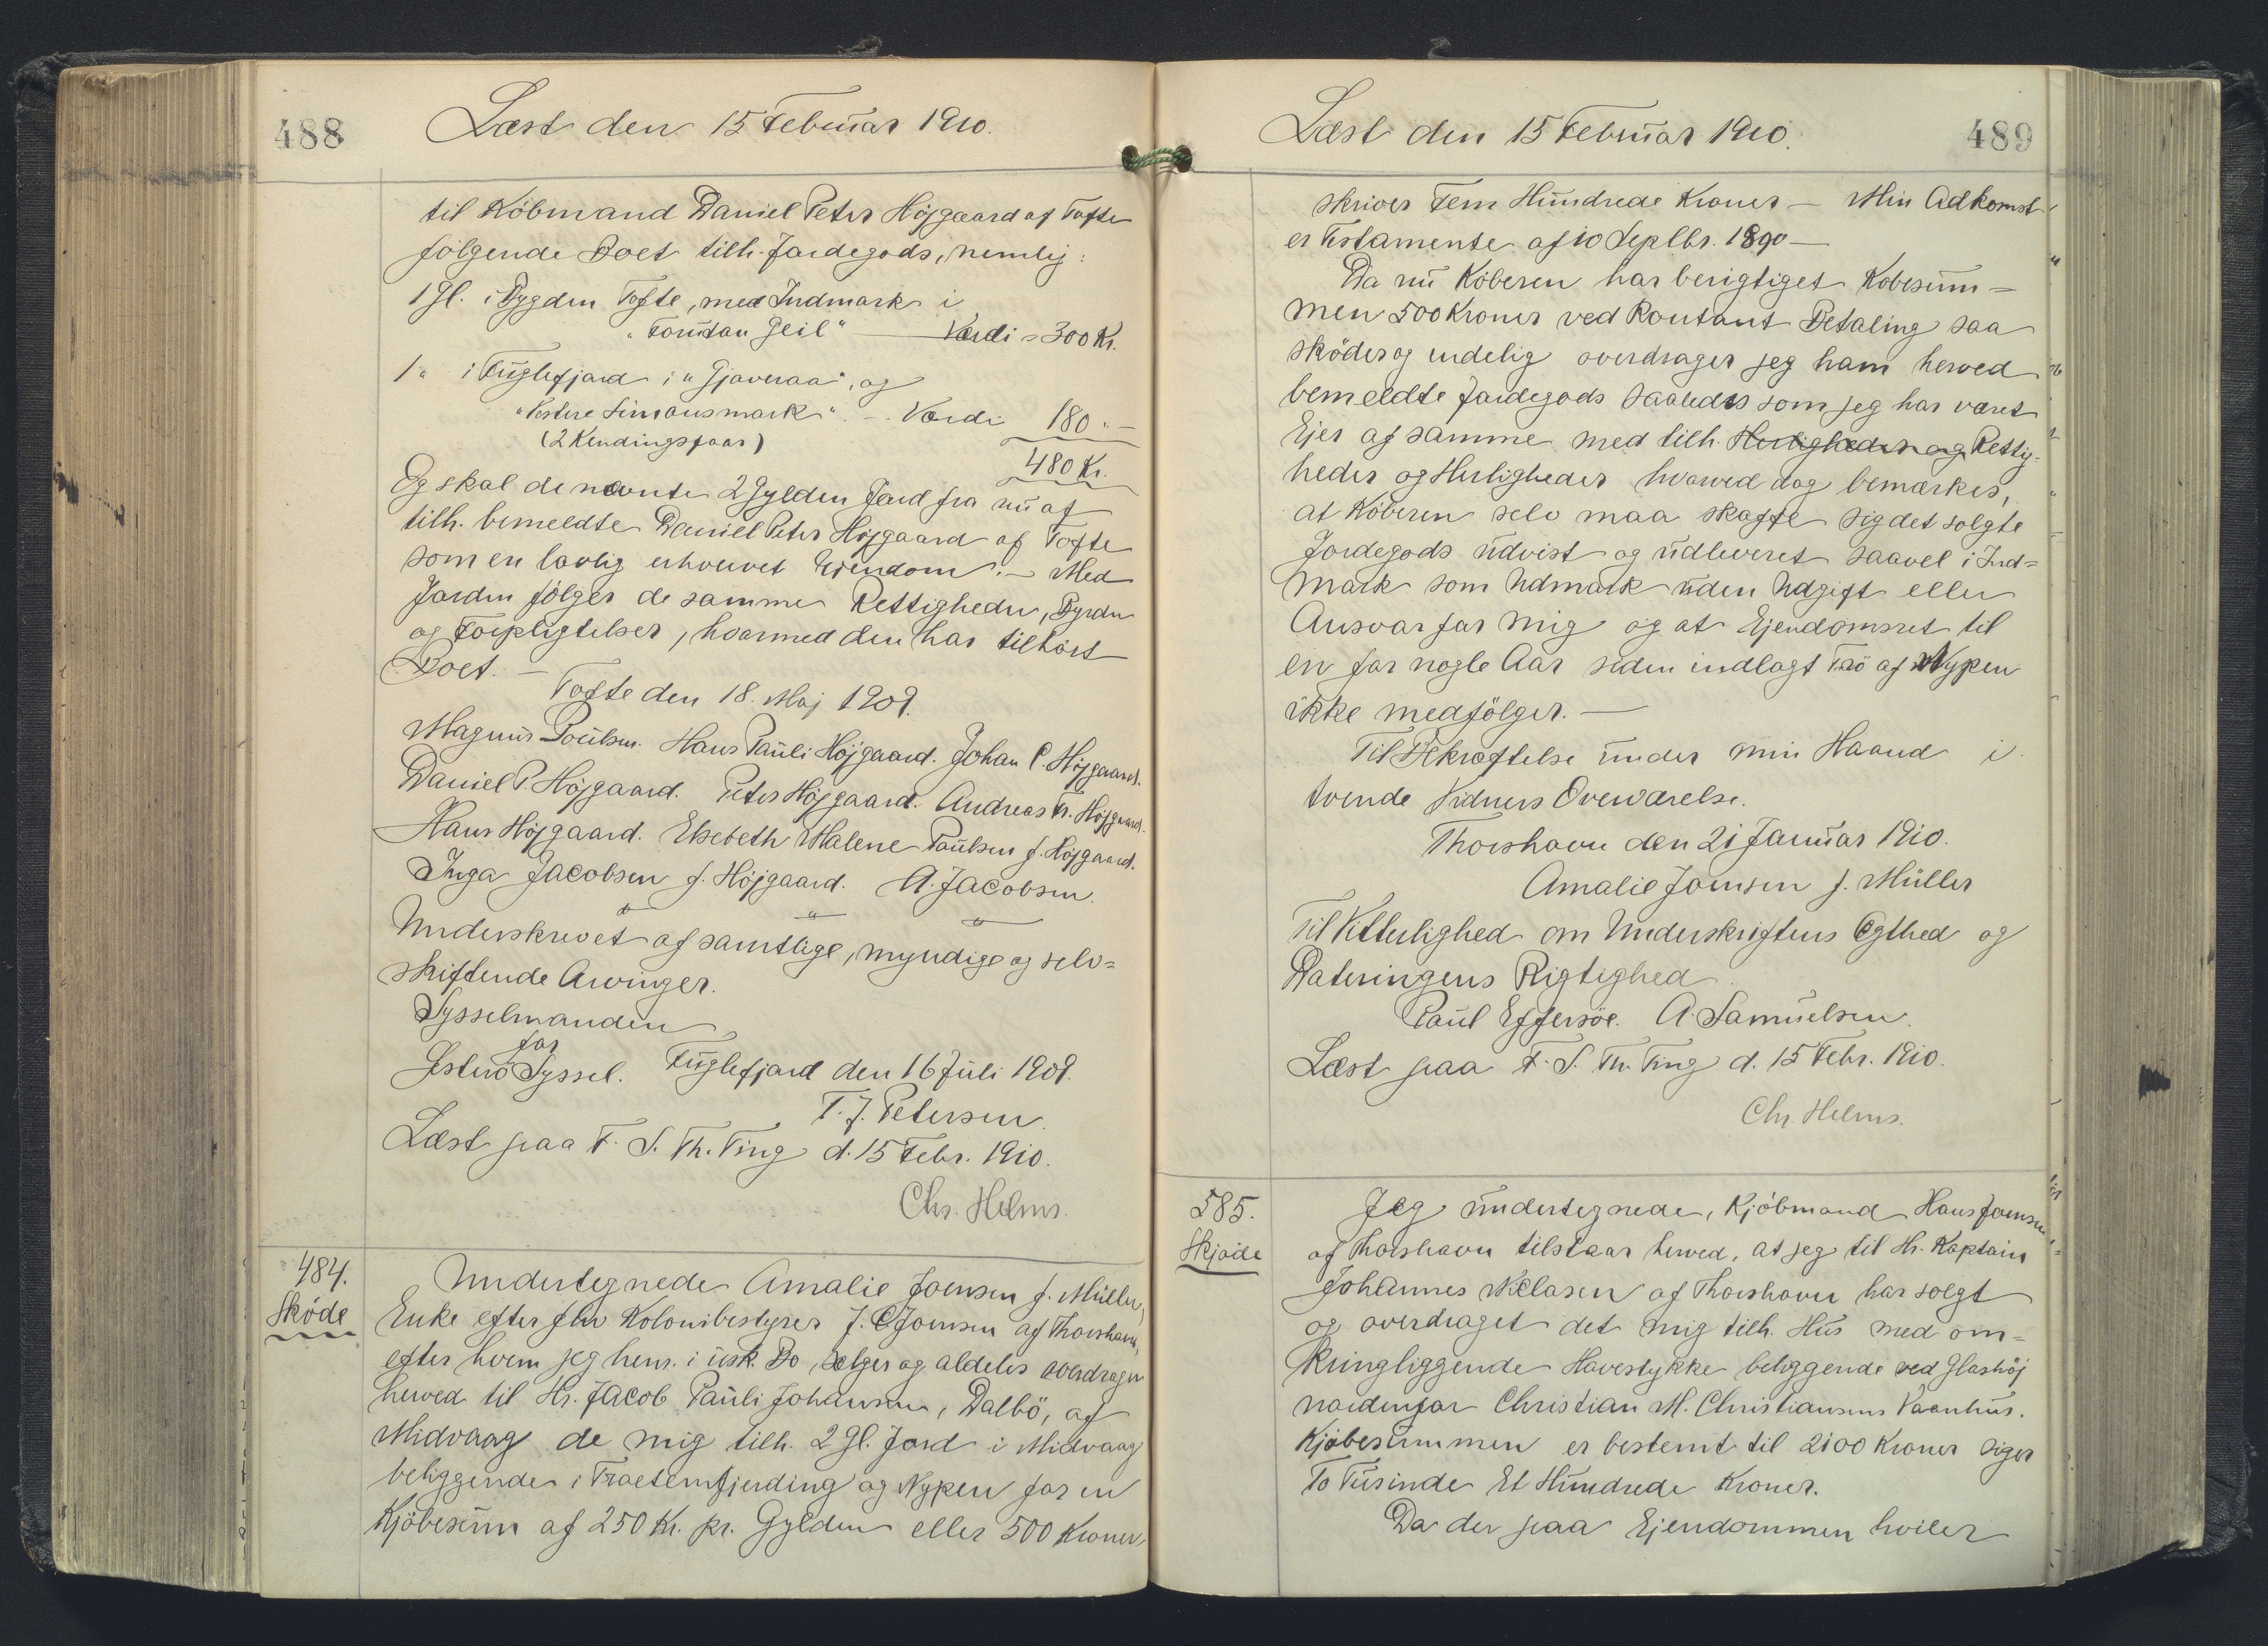 488
Læst den 15 Februar 1910.
til Köbmand Daniel Peter Höjgaard af Tofte
følgende Boet tilh. Jordegods, nemlig:
1 Gl. i Bygden Tofte, med Indmark i
"Torudan Geil" Værdi = 300 Kr.
1 " i Fuglefjord i "Gjaveraa", og
"Vestere Simonsmark". - Værdi 180 " -
(2 Kendingsfaar)
480 Kr.
Og skal de nævnte 2 Gylden Jord fra nu af
tilh. bemeldte Daniel Peter Höjgaard af Tofte
som en lovlig erhvervet Ejendom. - Med
Jorden fölger de samme Rettigheder, Byrder
og Forpligtelser, hvormed den har tilhört
Boet. -
Tofte den 18. Maj 1909.
Magnus Poulsen. Hans Pauli Höjgaard. Johan C. Höjgaard.
Daniel P. Höjgaard. Peter Höjgaard. Andreas Fr. Höjgaard.
Hans Höjgaard. Elsebeth Malene Paulsen f. Höjgaard.
Inga Jacobsen f. Höjgaard. A. Jacobsen.
Underskrevet af samtlige, myndige og selv=
skiftende Arvinger.
Sysselmanden
for
Østerö Syssel. Fuglefjord den 16 Juli 1909.
T. J. Petersen.
Læst paa F. S. Th. Ting d. 15 Febr. 1910.
Chr. Helms.
484.
Sköde
Undertegnede Amalie Joensen f. Müller,
Enke efter fhv. Kolonibestyrer J. C Joensen af Thorshavn,
efter hvem jeg hens. i usk. Bo, sælger og aldeles overdrager
herved til Hr. Jacob Pauli Johansen, Dalbö, af
Midvaag de mig tilh. 2 Gl. Jord i Midvaag
beliggende i Traetemfjerding og Nypen for en
Kjöbesum af 250 Kr. pr. Gylden eller 500 Kroner,
Læst den 15 Februar 1910.
489
skriver Fem Hundrede Kroner - Min Adkomst
er Testamente af 10 Septbr. 1890 -
Da nu Köberen har berigtiget Köbesum-
men 500 Kroner ved Kontant Betaling saa
sköder og endelig overdrager jeg ham herved
bemeldte Jordegods saaledes som jeg har været
Ejer af samme med tilh. Herligheder og Rettig-
heder og Herligheder hvorved dog bemærkes,
at Köberen selv maa skaffe sig det solgte
Jordegods udvist og udleveret saavel i Ind=
mark som Udmark uden Udgift eller
Ansvar for mig og at Ejendomsret til
en for nogle Aar siden indlagt Trö af Nypen
ikke medfölger. -
Til Bekræftelse under min Haand i
tvende Vidners Overværelse.
Thorshavn den 21 Januar 1910.
Amalie Joensen f. Müller
Til Vitterlighed om Underskriftens Ægthed og
Dateringens Rigtighed.
Paul Effersöe. A. Samuelsen.
Læst paa F. S. Th. Ting d. 15 Febr. 1910.
Chr. Helms.
585.
Skjöde
Jeg undertegnede, Kjöbmand Hans Joensen
af Thorshavn tilstaar herved, at jeg til Hr. Kaptain
Johannes Niclasen af Thorshavn har solgt
og overdraget det mig tilh. Hus med om=
kringliggende Havestykke beliggende ved Glashöj
nordenfor Christian M. Christiansens Vaanhus.
Kjöbesummen er bestemt til 2100 Kroner siger
To Tusinde Et Hundrede Kroner.
Da der paa Ejendommen hviler